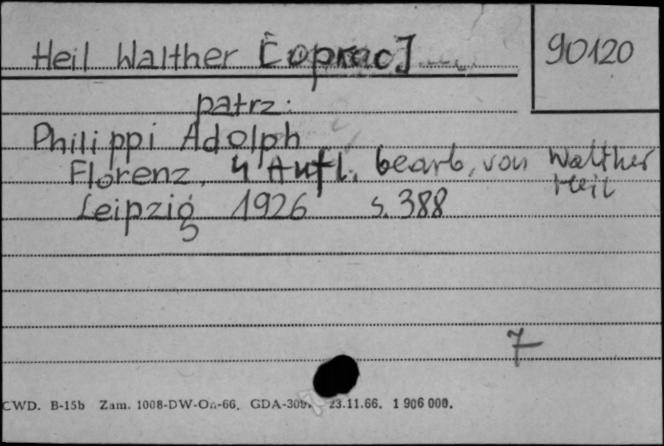 Heil Walther [oprac]
90120
patrz:
Philippi Adolph
Florenz, 4 Aufl. bearb, von Walther Heil
Leipzig 1926 s. 388
7
CWD. B-15b Zam. 1008-DW-On-66. GDA-309. 23.11.66. 1 906 000.